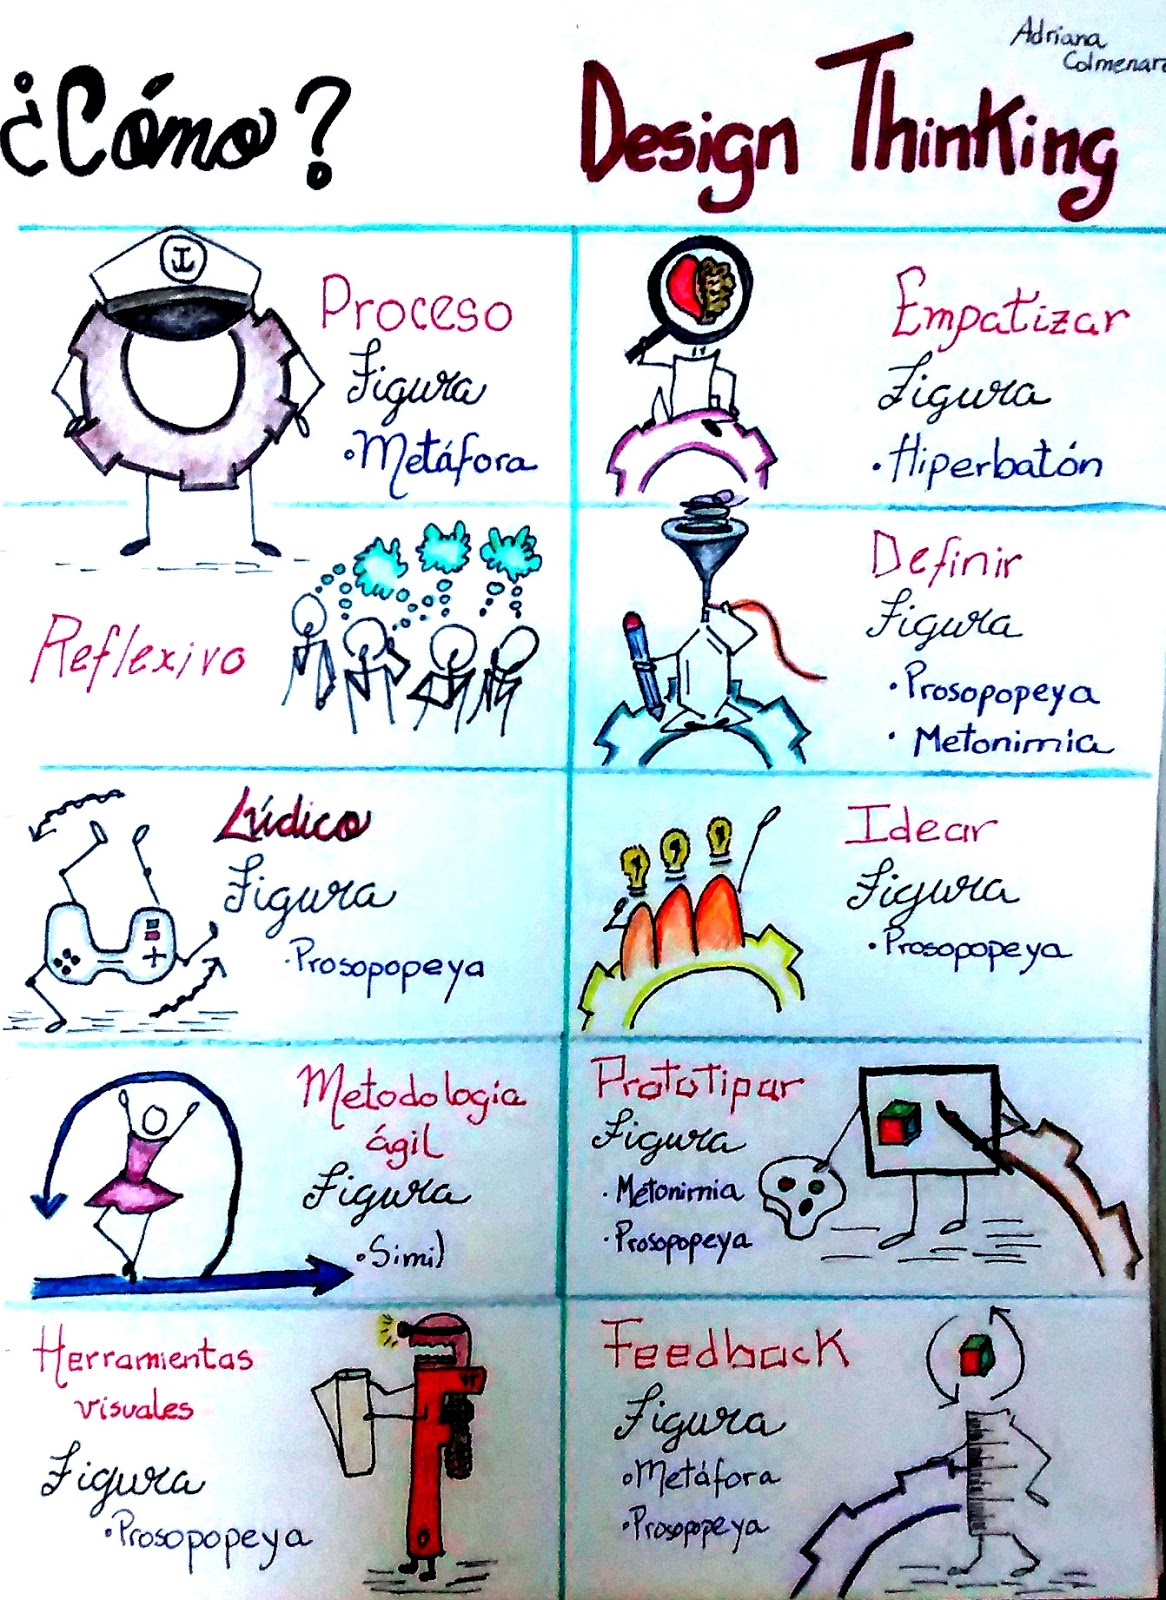 Adriana
Colmenar
¿Cómo?
Design Thinking
Proceso
Figura
• Metáfora
Reflexivo
Lúdico
Figura
· Prosopopeya
Metodología
ágil
Figura
• Simil
Herramientas
visuales
Figura
• Prosopopeya
Empatizar
Figura
• Hiperbatón
Definir
Figura
• Prosopopeya
• Metonimia
Idear
Figura
• Prosopopeya
Prototipar
Figura
· Metonimia
· Prosopopeya
Feedback
Figura
• Metáfora
• Prosopopeya